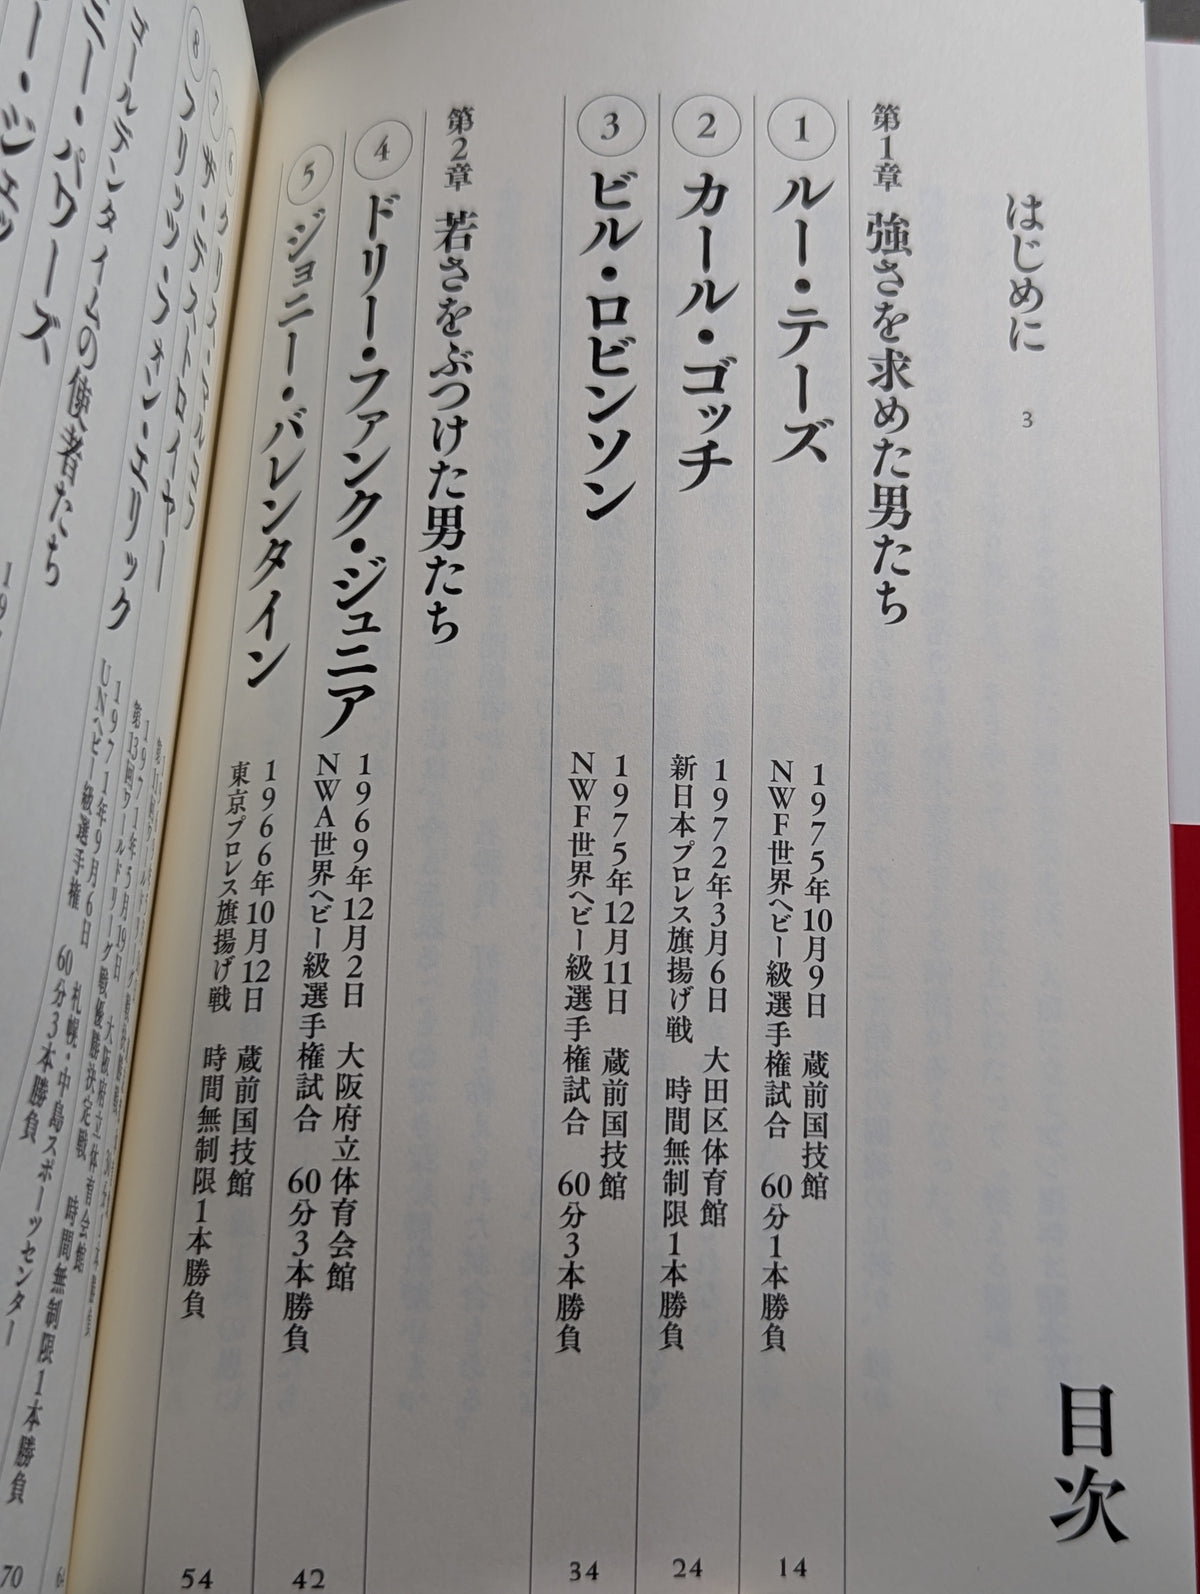 目次
はじめに 3
第1章 強さを求めた男たち
① ルー・テーズ
1975年10月9日 蔵前国技館
NWF世界ヘビー級選手権試合 60分1本勝負
14
② カール・ゴッチ
1972年3月6日 大田区体育館
新日本プロレス旗揚げ戦 時間無制限1本勝負
24
③ ビル・ロビンソン
1975年12月11日 蔵前国技館
NWF世界ヘビー級選手権試合 60分3本勝負
34
第2章 若さをぶつけた男たち
④ ドリー・ファンク・ジュニア
1969年12月2日 大阪府立体育会館
NWA世界ヘビー級選手権試合 60分3本勝負
42
⑤ ジョニー・バレンタイン
1966年10月12日 蔵前国技館
東京プロレス旗揚げ戦 時間無制限1本勝負
54
⑥
⑦ ザ・デストロイヤー
1971年5月19日 大阪府立体育会館
第13回ワールドリーグ戦優勝決定戦 時間無制限1本勝負
⑧ フリッツ・フォン・エリック
1971年9月6日 札幌・中島スポーツセンター
UNヘビー級選手権 60分3本勝負
70
ゴールデンタイムの使者たち
ニー・パワーズ